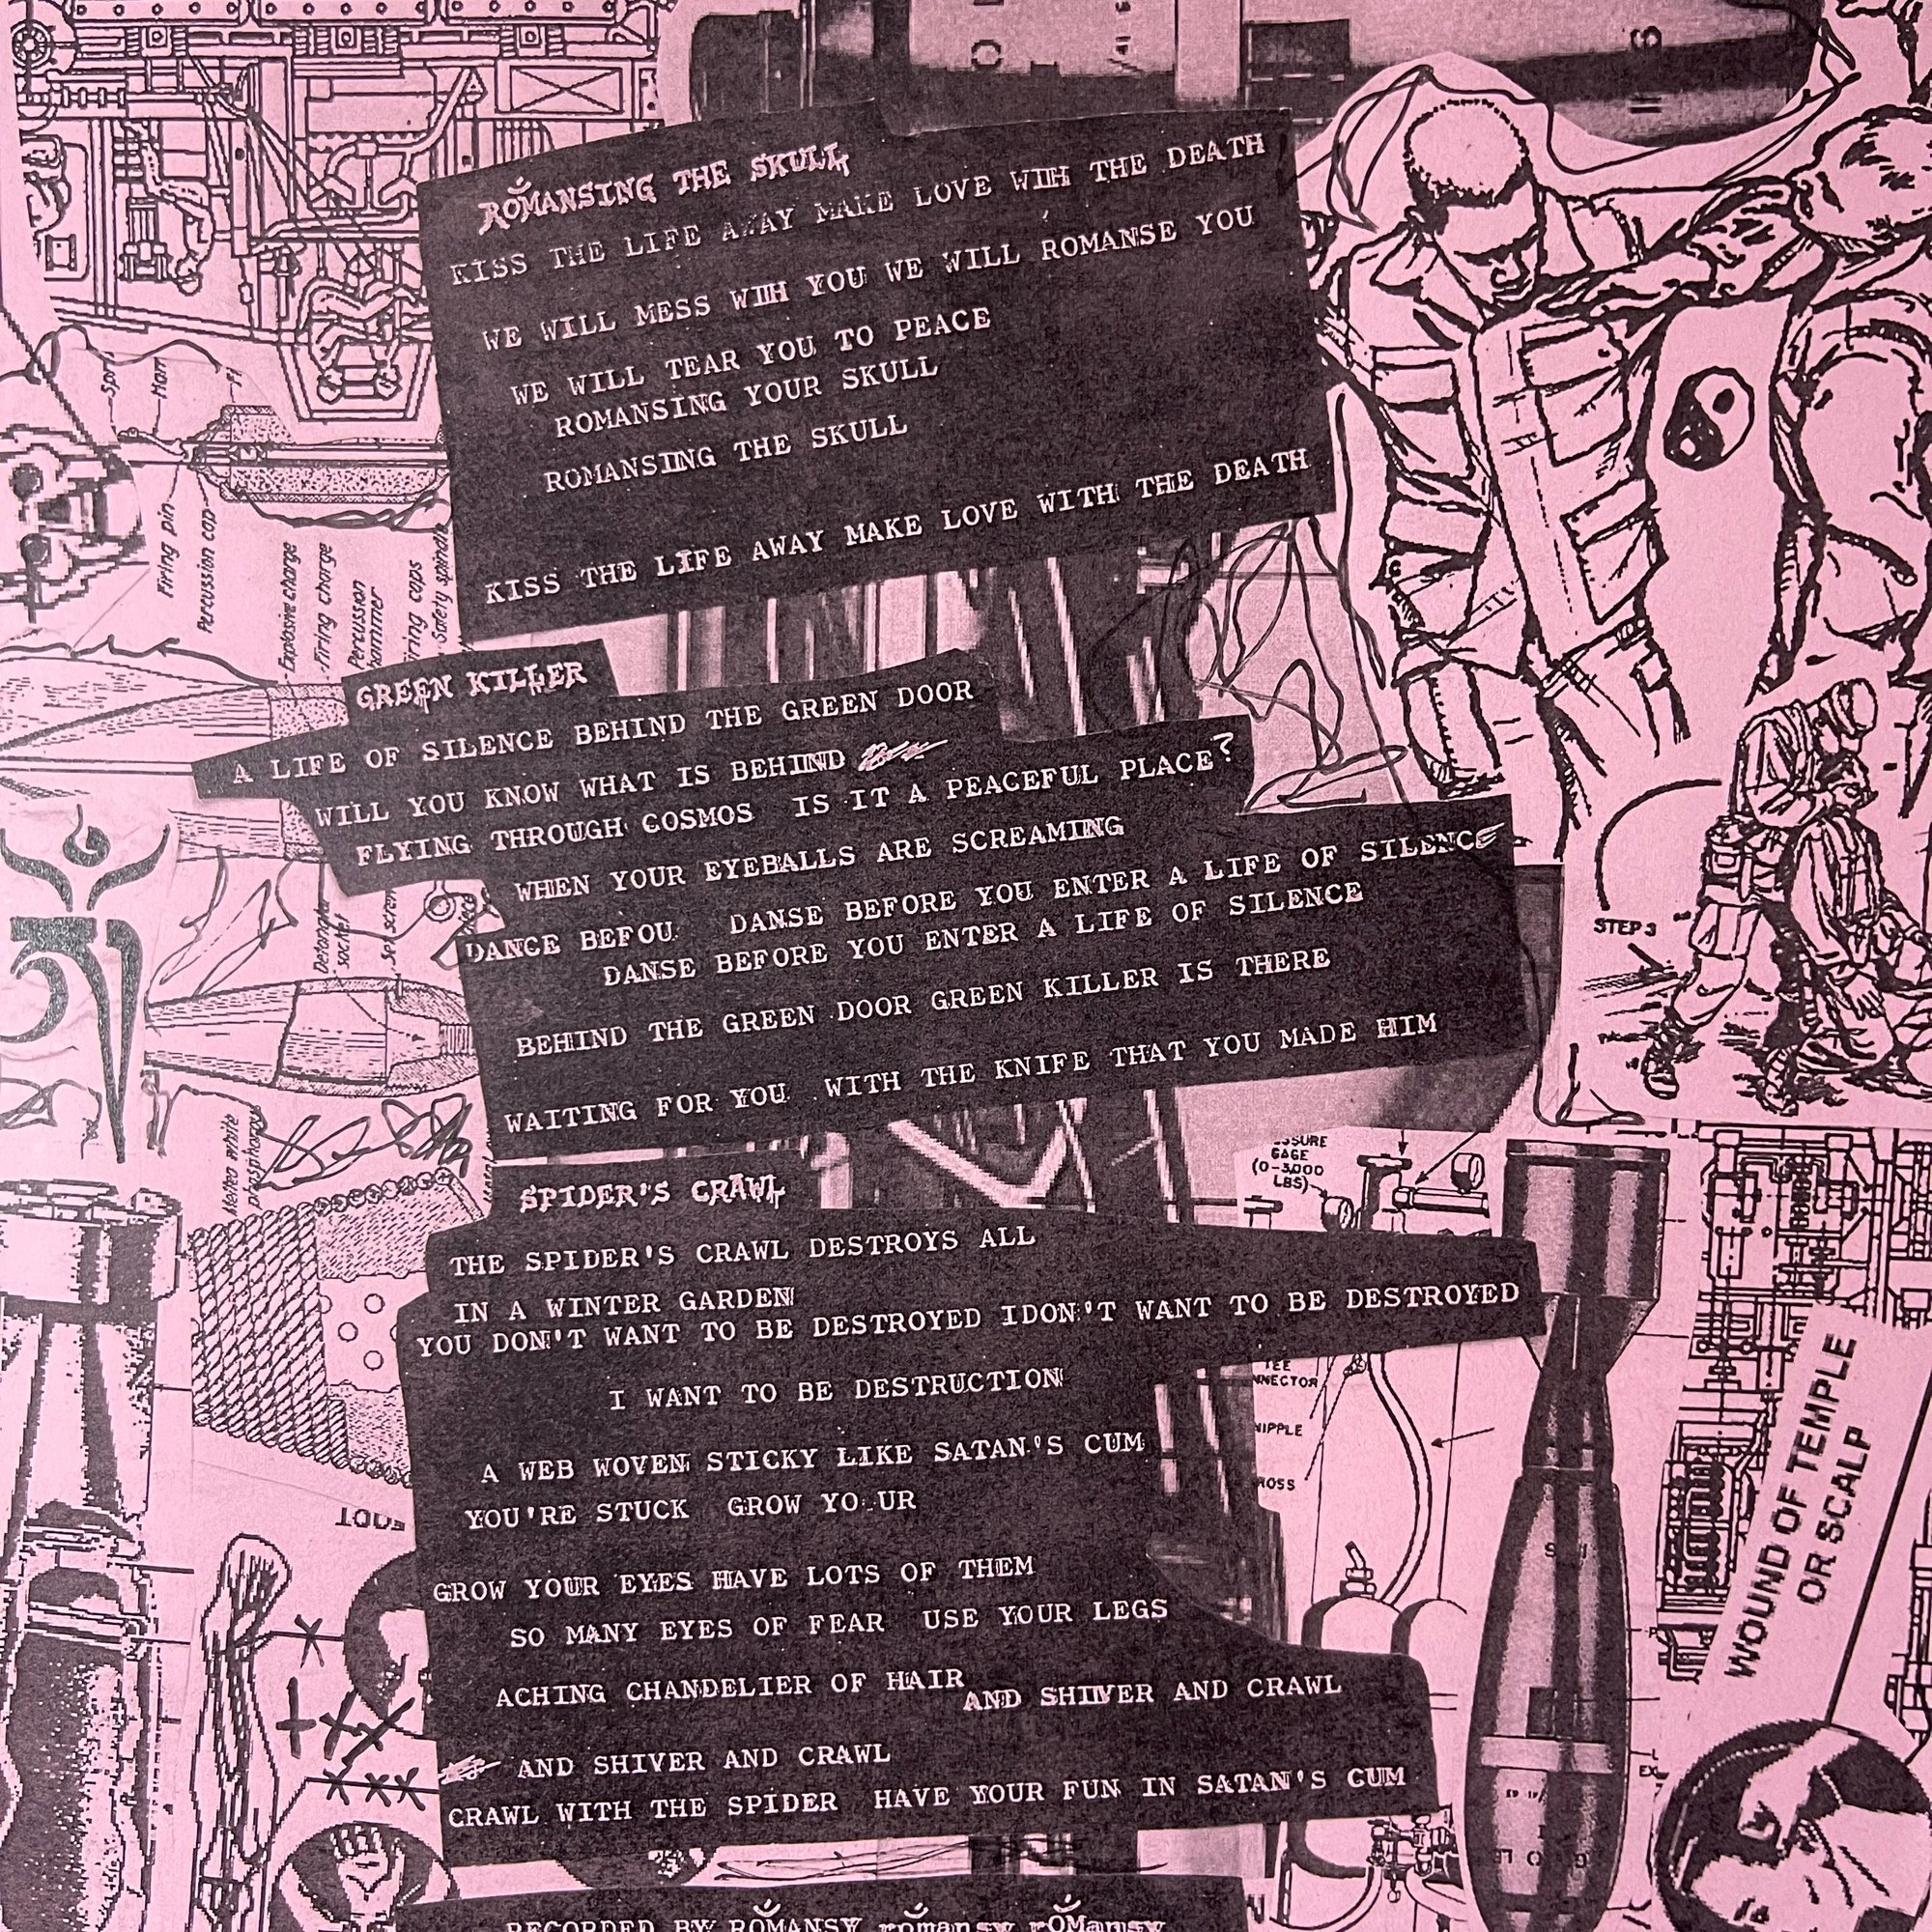 ROMANSING THE SKULL
KISS THE LIFE AWAY MAKE LOVE WITH THE DEATH
WE WILL MESS WITH YOU WE WILL ROMANSE YOU
WE WILL TEAR YOU TO PEACE
ROMANSING YOUR SKULL
ROMANSING THE SKULL
KISS THE LIFE AWAY MAKE LOVE WITH THE DEATH
GREEN KILLER
A LIFE OF SILENCE BEHIND THE GREEN DOOR
WILL YOU KNOW WHAT IS BEHIND
FLYING THROUGH COSMOS IS IT A PEACEFUL PLACE?
WHEN YOUR EYEBALLS ARE SCREAMING
DANCE BEFOU DANSE BEFORE YOU ENTER A LIFE OF SILENCE
DANSE BEFORE YOU ENTER A LIFE OF SILENCE
BEHIND THE GREEN DOOR GREEN KILLER IS THERE
WAITING FOR YOU WITH THE KNIFE THAT YOU MADE HIM
SPIDER'S CRAWL
THE SPIDER'S CRAWL DESTROYS ALL
IN A WINTER GARDEN
YOU DON'T WANT TO BE DESTROYED IDON'T WANT TO BE DESTROYED
I WANT TO BE DESTRUCTION
A WEB WOVEN STICKY LIKE SATAN'S CUM
YOU'RE STUCK GROW YO UR
GROW YOUR EYES HAVE LOTS OF THEM
SO MANY EYES OF FEAR USE YOUR LEGS
ACHING CHANDELIER OF HAIR
AND SHIVER AND CRAWL
AND SHIVER AND CRAWL
CRAWL WITH THE SPIDER HAVE YOUR FUN IN SATAN'S CUM
RECORDED BY ROMANSY romansy rOMansy
Firing pin
Percussion cap
Explosive charge
Firing charge
Percussion
hammer
Safety spindle
Detonator
Set screw
Melted white
phosphorus
STEP 3
GAGE
(0-3,000
LBS)
WOUND OF TEMPLE
OR SCALP